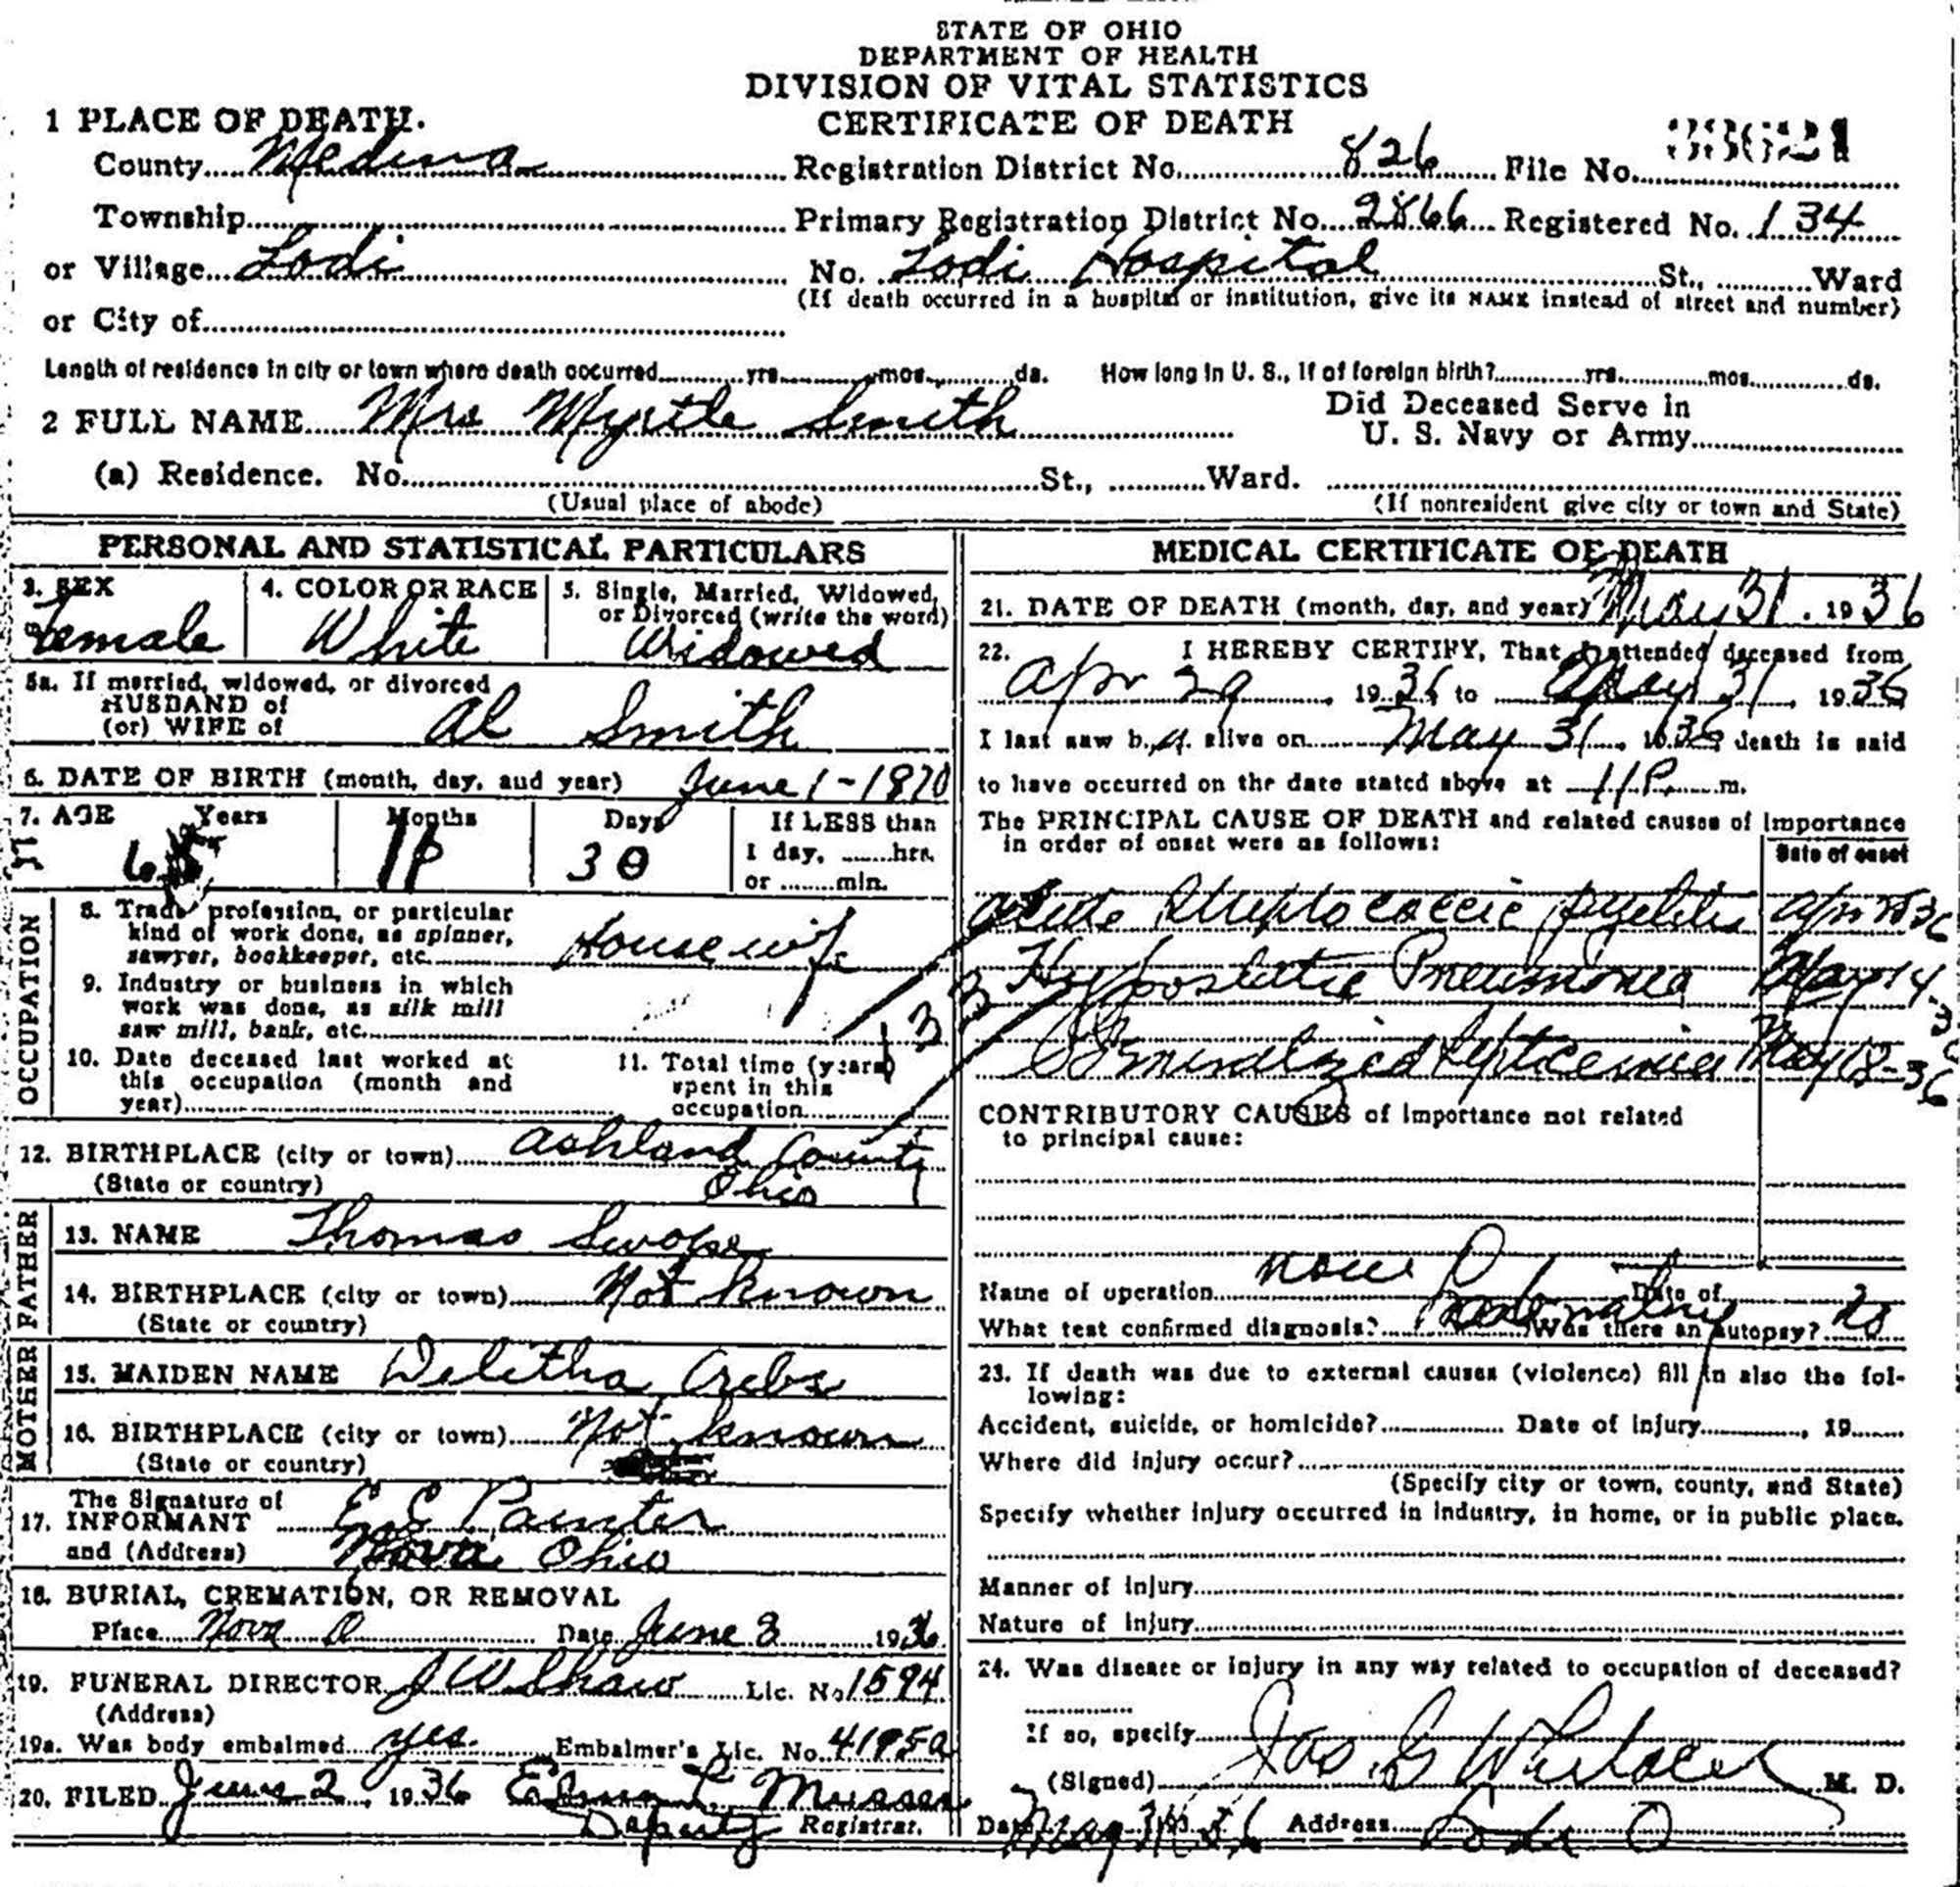 STATE OF OHIO
DEPARTMENT OF HEALTH
DIVISION OF VITAL STATISTICS
CERTIFICATE OF DEATH
1 PLACE OF DEATH.
County Medina Registration District No. 826 File No. 33621
Township Primary Registration District No. 2866 Registered No. 134
or Village Lodi No. Lodi Hospital St., Ward
(If death occurred in a hospital or institution, give its NAME instead of street and number)
or City of
Length of residence in city or town where death occurred yrs. mos. ds. How long in U. S., if of foreign birth? yrs. mos. ds.
2 FULL NAME Mrs Myrtle Smith
Did Deceased Serve in
U. S. Navy or Army
(a) Residence. No. St., Ward.
(Usual place of abode) (If nonresident give city or town and State)
PERSONAL AND STATISTICAL PARTICULARS
3. SEX 4. COLOR OR RACE 5. Single, Married, Widowed,
or Divorced (write the word)
Female White Widowed
5a. If married, widowed, or divorced
HUSBAND of
(or) WIFE of Al Smith
6. DATE OF BIRTH (month, day, and year) June 1-1870
7. AGE Years Months Days If LESS than
65 11 30 1 day, hrs.
or min.
OCCUPATION
8. Trade, profession, or particular
kind of work done, as spinner,
sawyer, bookkeeper, etc. Housewife
9. Industry or business in which
work was done, as silk mill
saw mill, bank, etc.
10. Date deceased last worked at
this occupation (month and
year)
11. Total time (years)
spent in this
occupation
12. BIRTHPLACE (city or town) Ashland County
(State or country) Ohio
FATHER
13. NAME Thomas Swope
14. BIRTHPLACE (city or town) Not known
(State or country)
MOTHER
15. MAIDEN NAME Delitha Crebs
16. BIRTHPLACE (city or town) Not known
(State or country)
17. The Signature of
INFORMANT E E Painter
and (Address) Nova, Ohio
18. BURIAL, CREMATION, OR REMOVAL
Place Nova O Date June 3 1936
19. FUNERAL DIRECTOR J W Shaw Lic. No 1594
(Address)
19a. Was body embalmed yes. Embalmer's Lic. No. 4195a
20. FILED June 2, 1936 Edna L. Musser
Deputy Registrar.
MEDICAL CERTIFICATE OF DEATH
21. DATE OF DEATH (month, day, and year) May 31. 1936
22. I HEREBY CERTIFY, That I attended deceased from
Apr 29, 1936 to May 31, 1936
I last saw h er alive on May 31, 1936, death is said
to have occurred on the date stated above at 11 P. m.
The PRINCIPAL CAUSE OF DEATH and related causes of Importance
in order of onset were as follows:
Date of onset
Acute Streptococcic pyelitis Apr 36
Hypostatic Pneumonia May 14-36
Generalized Septicemia May 18-36
CONTRIBUTORY CAUSES of importance not related
to principal cause:
Name of operation none Date of
What test confirmed diagnosis? Laboratory Was there an autopsy? no
23. If death was due to external causes (violence) fill in also the fol-
lowing:
Accident, suicide, or homicide? Date of injury, 19
Where did injury occur?
(Specify city or town, county, and State)
Specify whether injury occurred in industry, in home, or in public place.
Manner of injury
Nature of injury
24. Was disease or injury in any way related to occupation of deceased?
If so, specify
(Signed) Jas G M. D.
Date May 31 1936 Address Lodi O